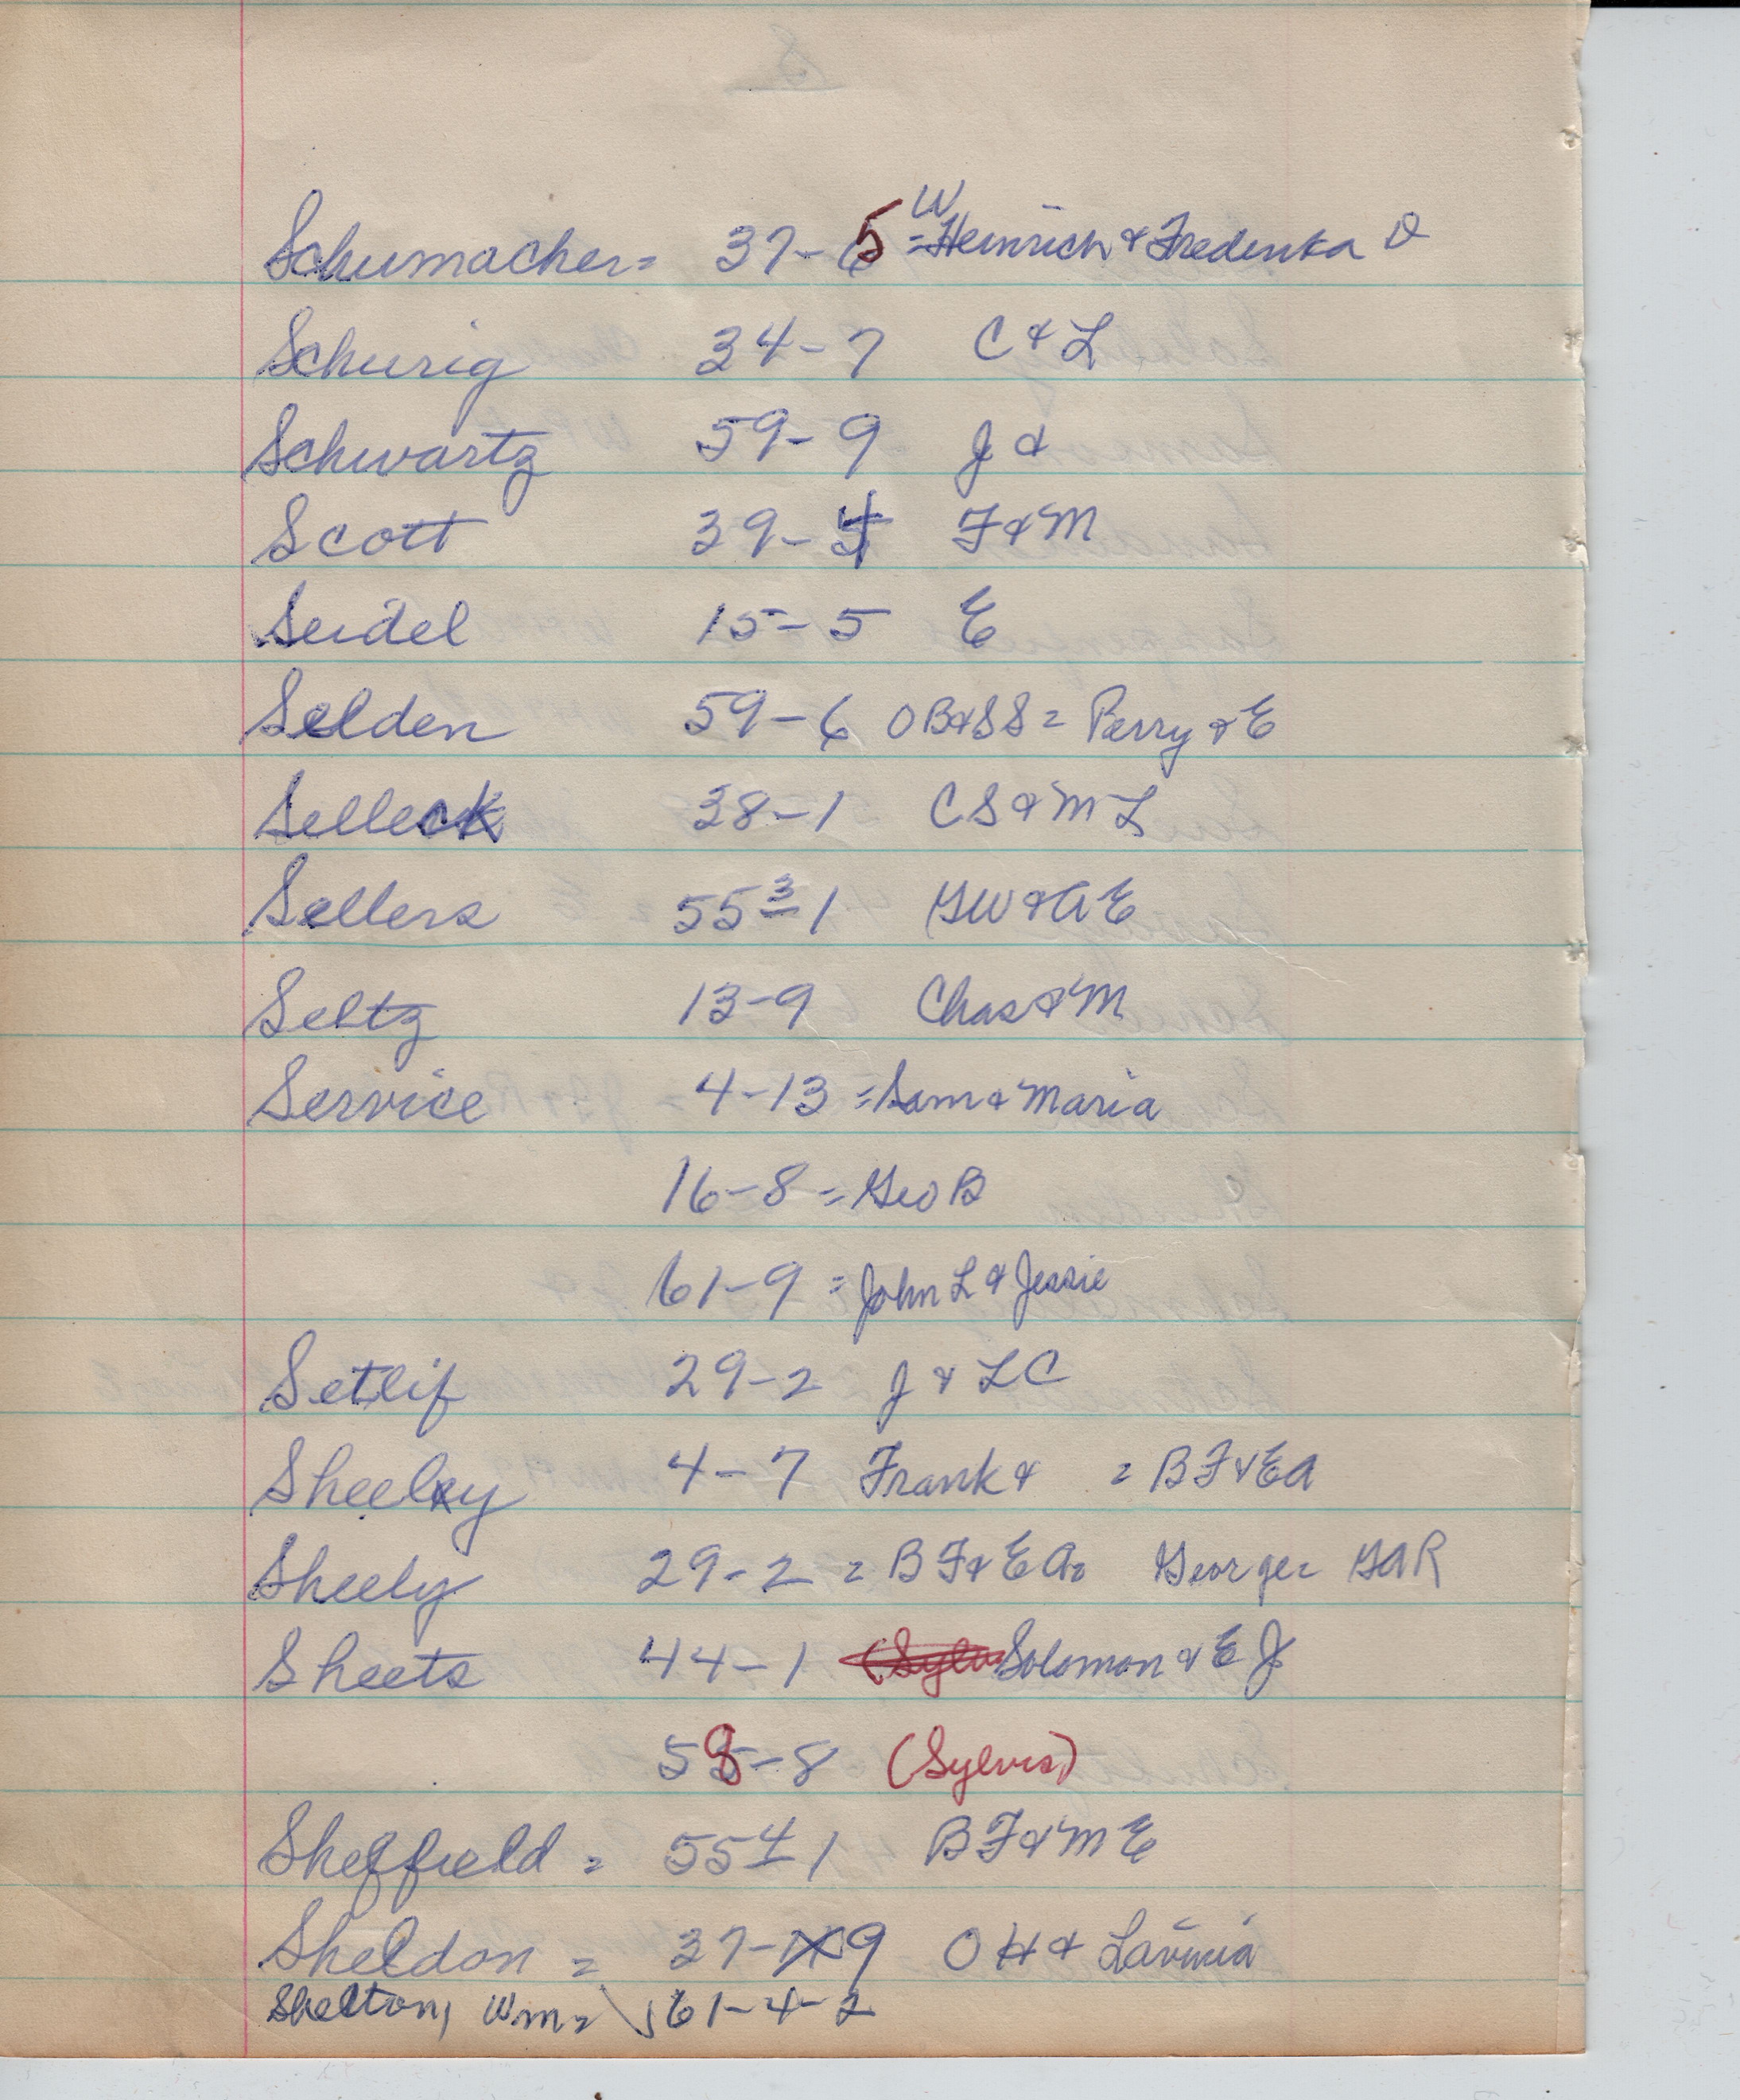 Schumacher = 37-5 = W Heinrich & Frederika D
Schurig 34-7 C & L
Schwartz 59-9 J &
Scott 39-4 F & M
Seidel 15-5 E
Selden 59-6 OB & SS = Perry & E
Selleck 38-1 CS & ML
Sellers 55 3 - 1 GW & AE
Seltz 13-9 Chas & M
Service 4-13 = Sam & Maria
16-8 = Geo B
61-9 = John L & Jessie
Setlif 29-2 J & LC
Sheely 4-7 Frank & = BF & EA
Sheely 29-2 = BF & EA = George = GAR
Sheets 44-1 (Sylvis Solomon & EJ
58-8 (Sylvis)
Sheffield = 55 4 - 1 BF & ME
Sheldon = 37-9 OH & Lavinia
Shelton, Wm = 61-4-2